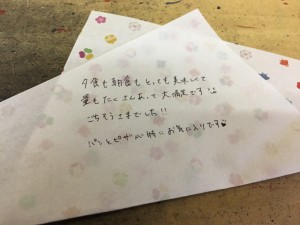 夕食も朝食もとっても美味しくて
量もたくさんあって大満足です
ごちそうさまでした!!
パンとピザが特にお気に入りです